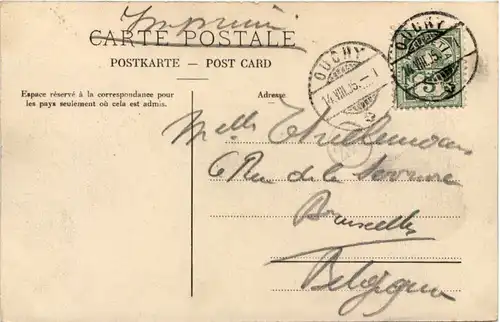 Imprimé
CARTE POSTALE
POSTKARTE — POST CARD
OUCHY
14.VIII.05.—1
OUCHY
14.VIII.05.
5
Espace réservé à la correspondance pour
les pays seulement où cela est admis.
Adresse
Melle
6 Rue de la
Bruxelles
Belgique